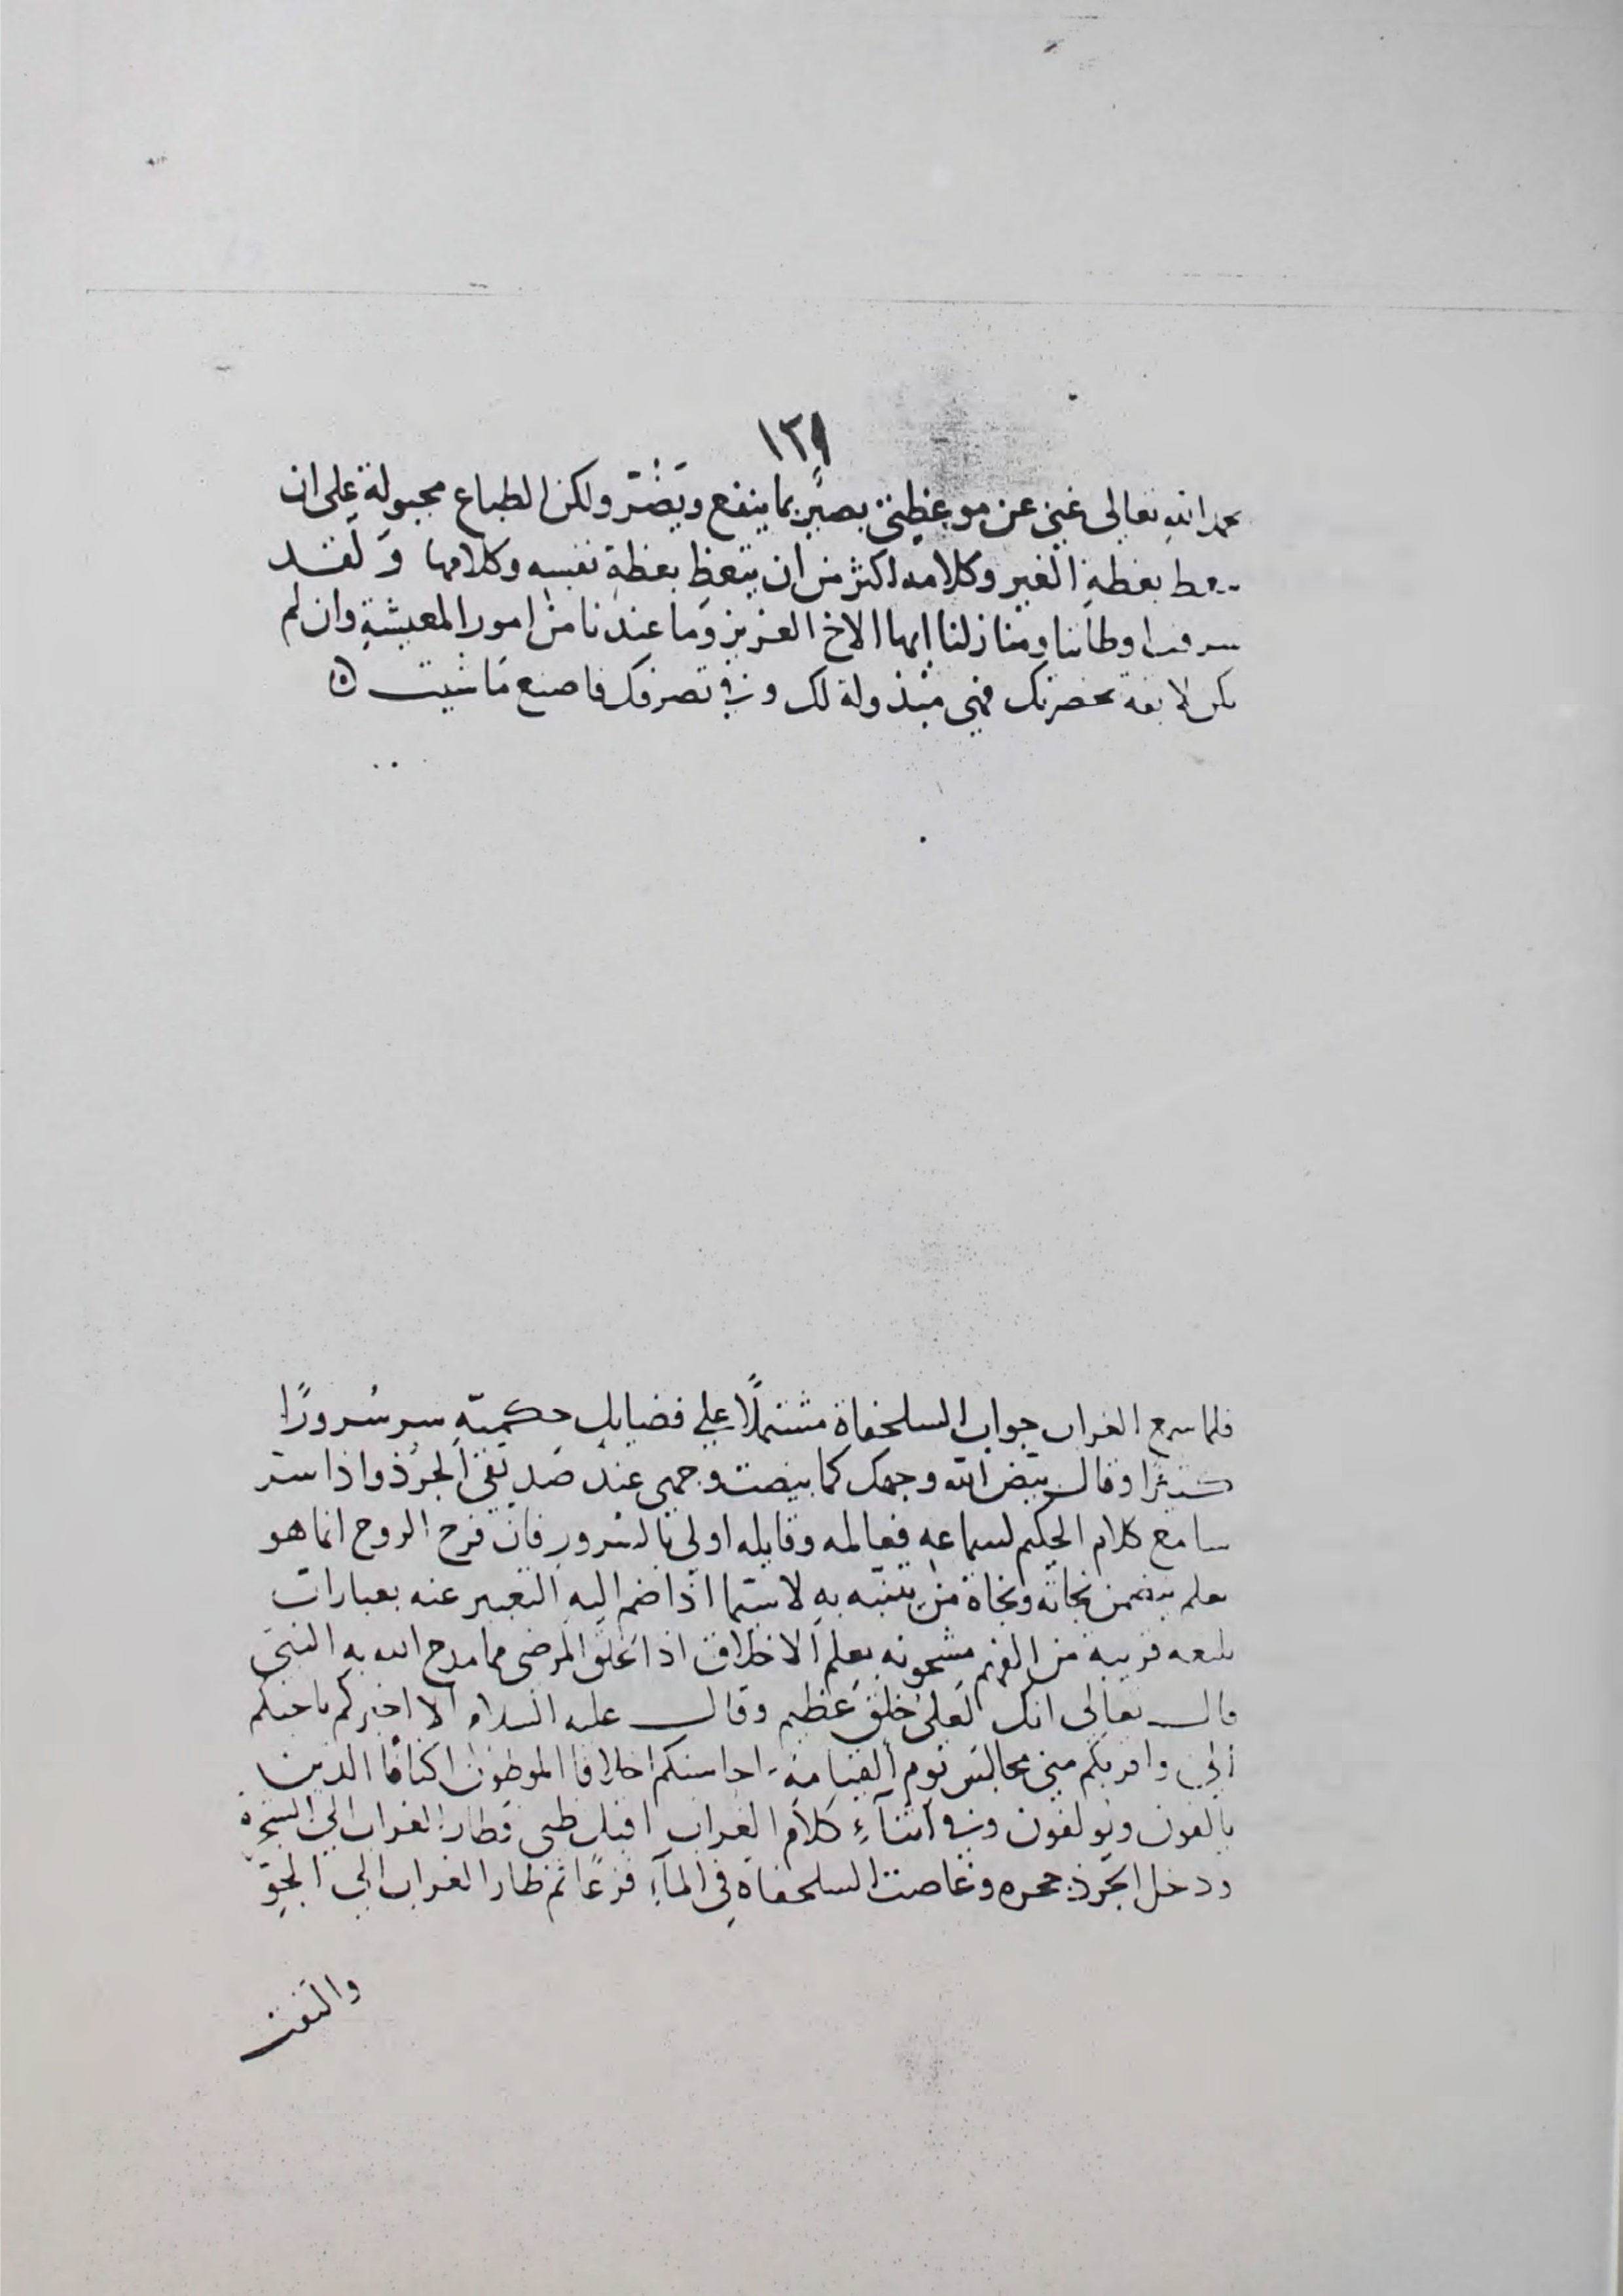 ١٢٩
بحمد الله تعالى غني عن موعظتي بصير بما ينفع ويضر ولكن الطباع مجبولة على ان
بعظة الغير وكلامه اكثر من ان يتعظ بعظة نفسه وكلامها ولقد
اوطاننا ومنازلنا ايها الاخ العزيز وما عندنا من امور المعيشة وان لم
يكن لايقة بحضرتك فهي مبذولة لك وفي تصرفك فاصنع ما شيت
فلما سمع الغراب جواب السلحفاة مشتملًا علي فضايل حكمية سر سُرورًا
كثيرًا وقال بيّض الله وجهك كما بيضت وجهي عند صديقي الجرذ واذا ستر
سامع كلام الحكيم لسماعه فعالمه وقايله اولي بالسرور فان فرح الروح انما هو
بعلم يتضمن نجاته ونجاة من يتنبّه به لا سيّما اذا ضم اليه التعبير عنه بعبارات
قريبة من الفهم مشحونه بعلم الاخلاق اذا الخلق المرضي مما مدح الله به النبي
قال تعالى انك لعلى خلق عظيم وقال عليه السلام الا اخبركم باحبكم
الي واقربكم مني مجالس يوم القيامة احاسنكم اخلاقا الموطون اكنافًا الذين
يالفون ويولفون وفي اثنآء كلام الغراب اقبل ظبي فطار الغراب الي الشجرة
ودخل الجرذ جحره وغاصت السلحفاة في المآء فزعًا ثم طار الغراب الي الجوّ
والتفت